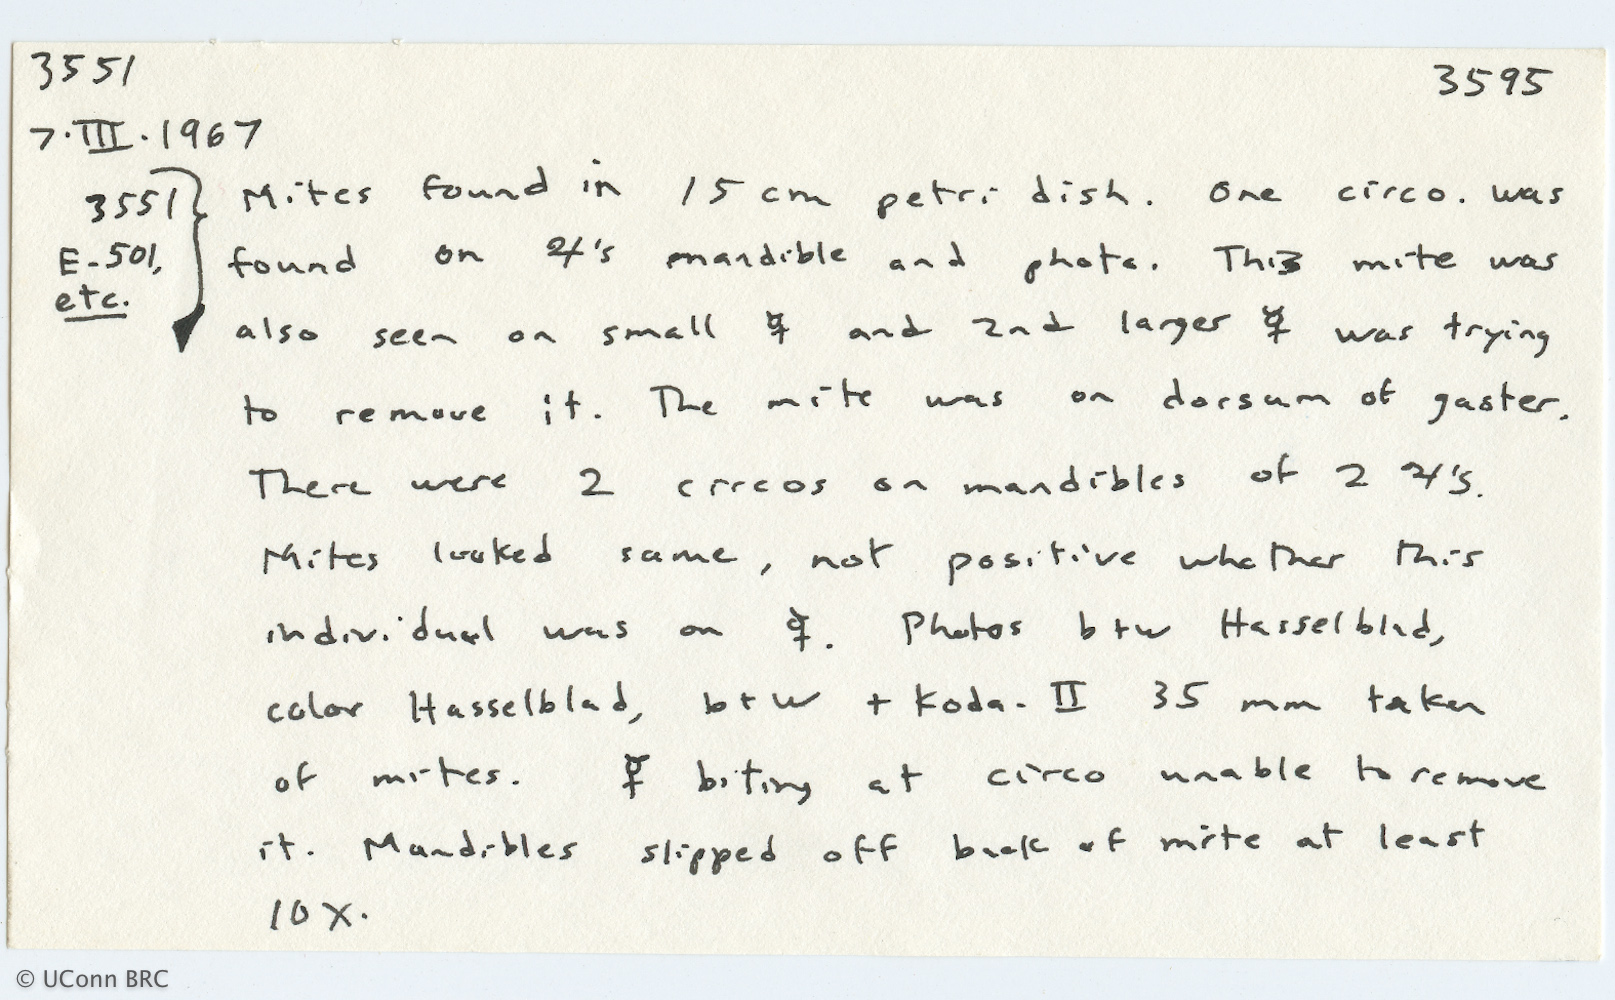 3551
3595
7·III·1967
3551
E-501,
etc.
Mites found in 15 cm petri dish. One circo. was
found on ♃'s mandible and photo. This mite was
also seen on small ☿ and 2nd larger ☿ was trying
to remove it. The mite was on dorsum of gaster.
There were 2 circos on mandibles of 2 ♃'s.
Mites looked same, not positive whether this
individual was on ☿. Photos b+w Hasselblad,
color Hasselblad, b+w + Koda-II 35 mm taken
of mites. ☿ biting at circo unable to remove
it. Mandibles slipped off back of mite at least
10 X.
© UConn BRC